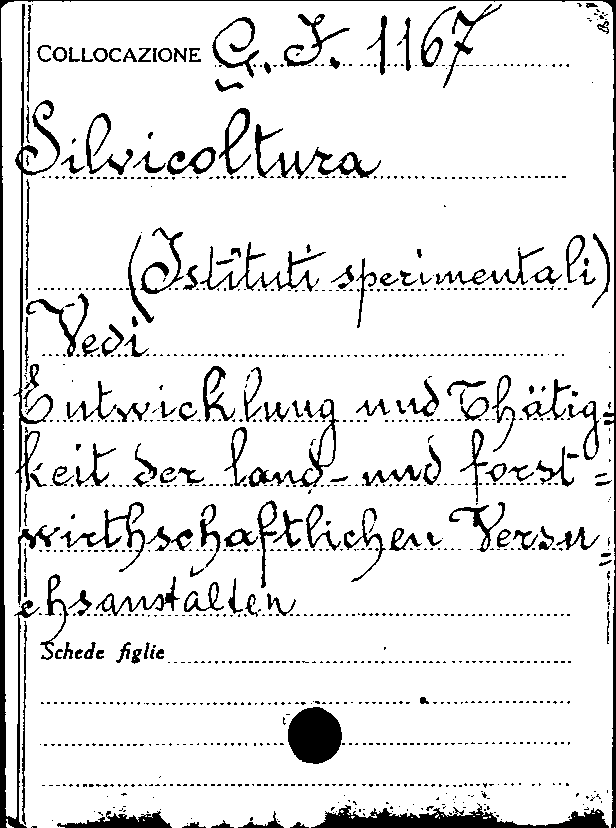 COLLOCAZIONE G. F. 1167
Silvicoltura
(Istituti sperimentali)
Vedi
Entwicklung und Thätig=
keit der land- und forst=
wirthschaftlichen Versu=
chsanstalten
Schede figlie